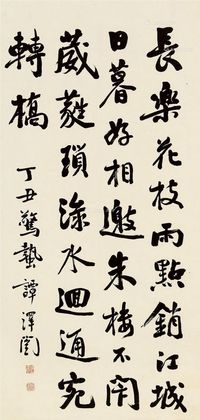 長樂花枝雨點銷江城
日暮好相邀朱樓不閉
葳蕤瑣淥水迴通宛
轉橋
丁丑驚蟄譚澤闓